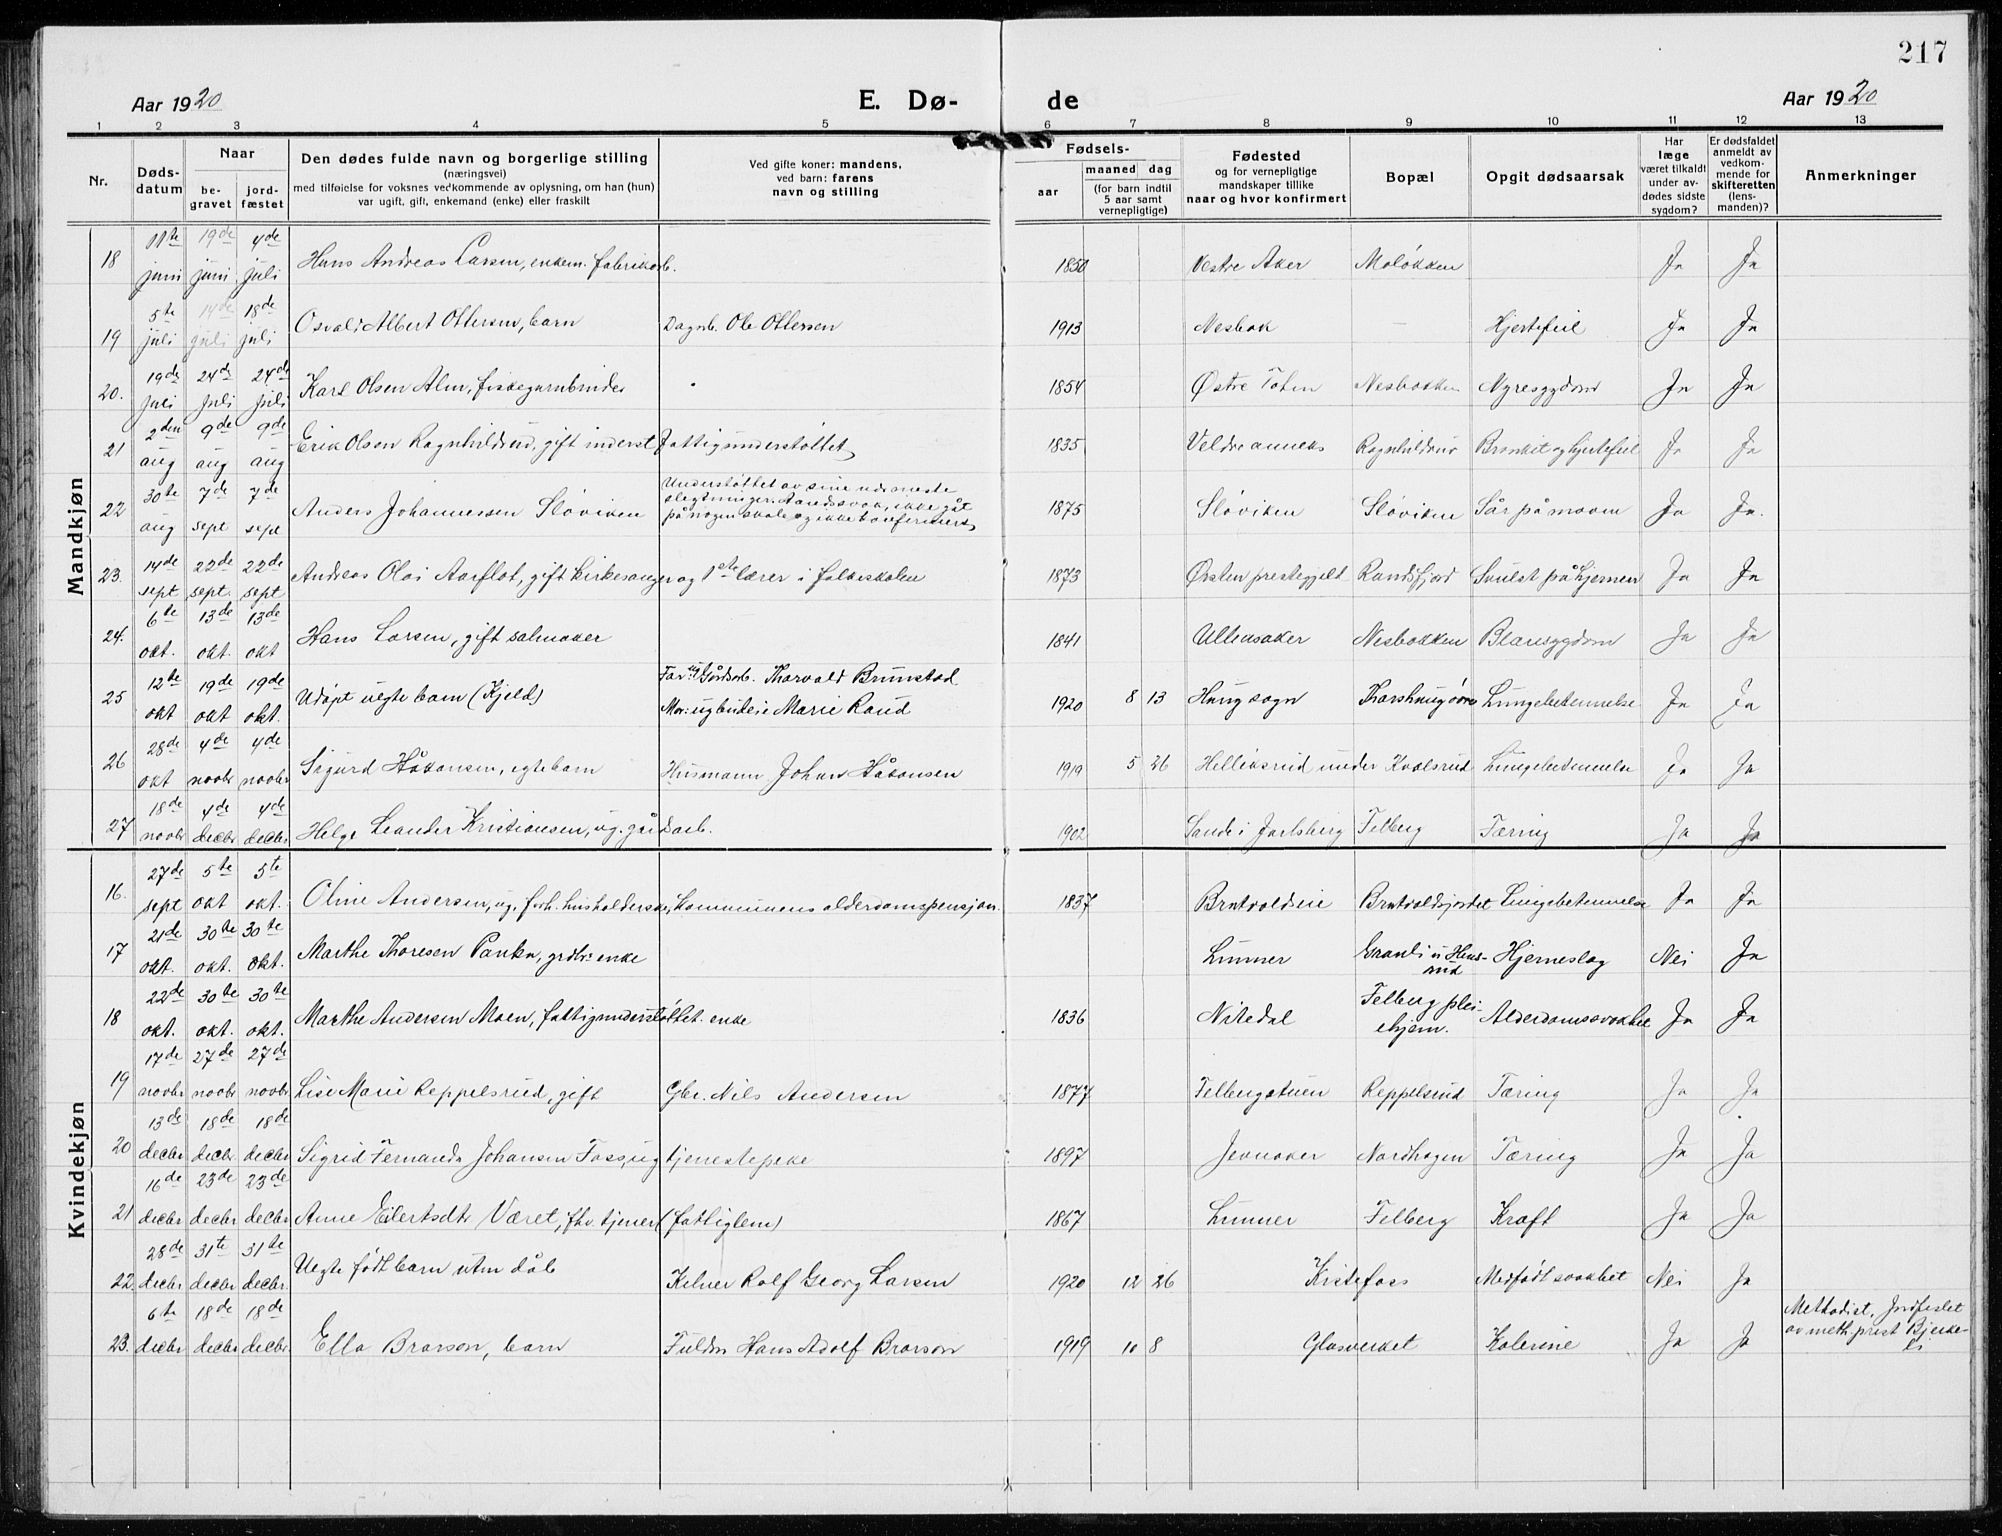 217
Aar 1920 E. Dø- de Aar 1920
1 2 3 4 5 6 7 8 9 10 11 12 13
Nr. Dødsdatum Naar begravet jordfæstet Den dødes fulde navn og borgerlige stilling (næringsvei) med tilføielse for voksnes vedkommende av oplysning, om han (hun) var ugift, gift, enkemand (enke) eller fraskilt Ved gifte koner: mandens, ved barn: farens navn og stilling Fødsels- aar maaned dag (for barn indtil 5 aar samt vernepligtige) Fødested og for vernepligtige mandskaper tillike naar og hvor konfirmert Bopæl Opgit dødsaarsak Har læge været tilkaldt under avdødes sidste sygdom? Er dødsfaldet anmeldt av vedkommende for skifteretten (lensmanden)? Anmerkninger
Mandkjøn
18 11te juni 19de juni 4de juli Hans Andreas Larsen, enkem. fabrikarb. 1850 Vestre Aker Moløkken Ja Ja
19 5te juli 14de juli 18de juli Osvald Albert Ottersen, barn Dagarb. Ole Ottersen 1913 Nesbak — Hjertefeil Ja Ja
20. 19de juli 24de juli 24de juli Karl Olsen Alm, fiskegarnbinder 1854 Østre Toten Nesbakken Nyresygdom Ja Ja
21 2den aug 9de aug 9de aug Erik Olsen Ragnhildrud, gift inderst fattigunderstøttet 1835 Veldre anneks Ragnhildrud Bronkit og hjertefeil Ja Ja
22 30te aug 7de sept 7de sept Anders Johannessen Sløviken Understøttet av sine nærmeste slegtninger. Aandssvak, ikke gåt på nogen skole og ikke konfirmert 1875 Sløviken Sløviken Sår på maven Ja Ja.
23. 14de sept 22de sept. 22de sept Andreas Olai Aarflot, gift kirkesanger og 1ste lærer i folkeskolen 1873 Ørsten prestegjeld Randsfjord Svulst på hjernen Ja Ja
24. 6te okt. 13de okt. 13de okt Hans Larsen, gift salmaker 1841 Ullensaker Nesbakken Blæresygdom Ja Ja
25 12te okt 19de okt 19de okt. Udøpt uegte barn (Kjeld) Far: ug Gårdsarb. Thorvald Brunstad Mor: ug budeie Marie Raud 1920 8 13 Haug sogn Lungebetennelse Ja Ja
26 28de okt 4de novbr 4de novbr Sigurd Håkonsen, egte barn Husmann Johan Håkonsen 1919 5 26 Helliksrud under Kvalsrud Lungebetennelse Ja Ja
27 18de novbr 4de decbr 4de decbr. Helge Leander Kristiansen, ug. gårdsarb. 1902 Sande i Jarlsberg Felberg Tæring Ja Ja
Kvindekjøn
16. 27de sept 5te okt 5te okt. Oline Andersen, ug. forh. husholderske, kommunens alderdomspensjon. 1837 Bratvoldseie Lungebetennelse Ja Ja
17 21de okt. 30te okt. 30te okt. Marthe Thoresen Panka, grdbr: enke Lunner Granli u Hensrud Hjerneslag Nei Ja
18 22de okt. 30te okt. 30te okt. Marthe Andersen Moen, fattigunderstøttet. enke 1836 Nitedal Felberg pleiehjem. Alderdomssvakhet Ja Ja
19 17de novbr 27de novbr 27de novbr Lise Marie Reppelsrud, gift Gbr. Nils Andersen 1877 Felbergstuen Reppelsrud Tæring Ja Ja
20 13de decbr 18de decbr 18de decbr Sigrid Fernanda Johansen Foss, ug tjenestepike 1897 Jevnaker Nordhagen Tæring Ja Ja
21 16de decbr 23de decbr 23de decbr Anne Eilertsdtr Været, fhv. tjener (fattiglem) 1867 Lunner Felberg Kræft Ja Ja
22. 28de decbr 31te decbr 31te decbr. Uegte født barn uten dåb Kelner Rolf Georg Larsen 1920 12 26 Kistefoss Medfødt svakhet Nei Ja
23. 6te decbr 18de decbr 18de decbr. Ella Brorson, barn Fuldm Hans Adolf Brorson 1919 10 8 Glasverket Kolerine Ja Ja Methodist, Jordfestet av meth. prest Bjerke-